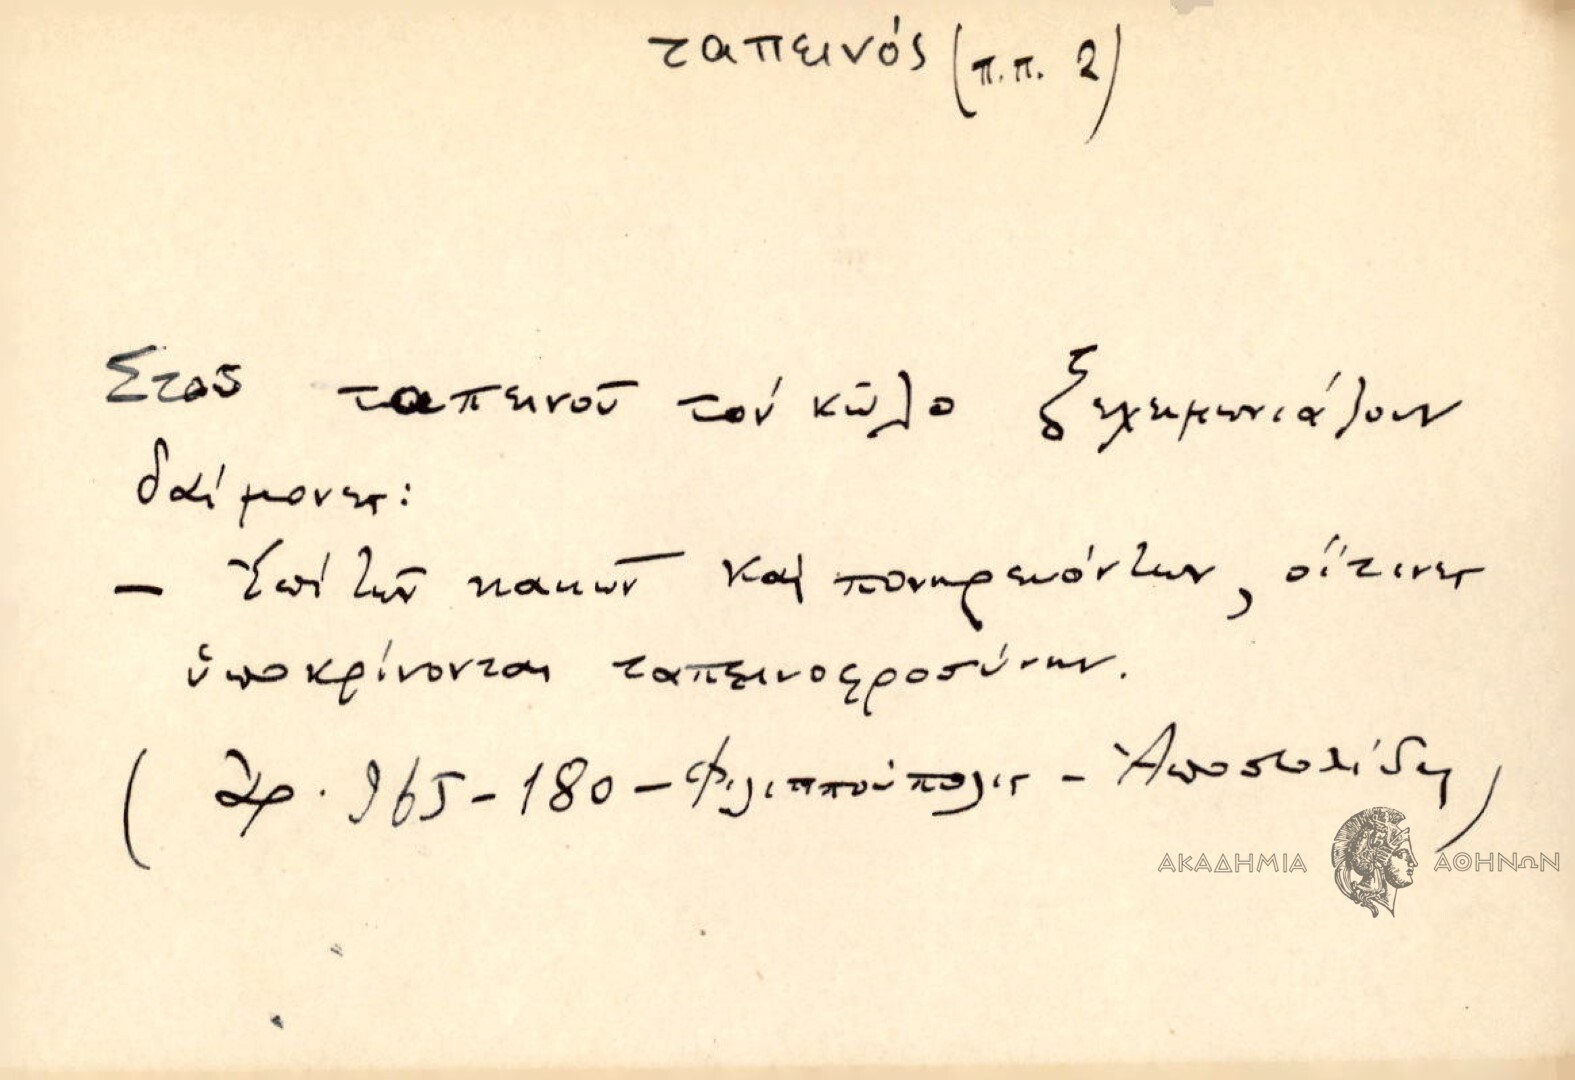 ταπεινός (π.π. 2)
Στοῦ ταπεινοῦ τόν κῶλο ξεχειμωνιάζουν
δαίμονες:
– Ἐπί τῶν κακῶν καί πονηρευόντων, οἵτινες
ὑποκρίνονται ταπεινοφροσύνην.
( Ἀρ. 965-180-Φιλιππούπολις - Ἀποστολίδης)
ΑΚΑΔΗΜΙΑ ΑΘΗΝΩΝ